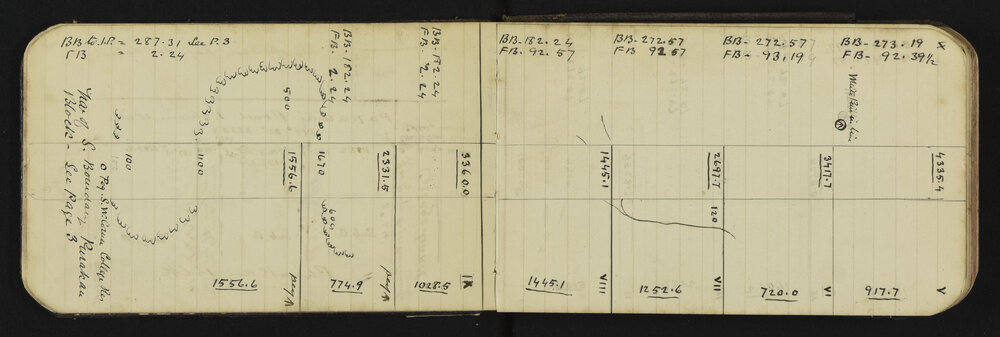 BB to I.P. = 287.31 See P. 3
FB " 2.24
Trav of S. Boundary Purakau
Block - See Page 3
o Peg S.W. Corner College Res.
100
1100
500
1556.6
1556.6
peg
BB- 182.24
FB. 2.24
1670
600
774.9
2331.5
peg
BB- 182.24
FB. 2.24
1028.5
3360.0
IX
BB- 182.24
FB. 92.57
1445.1
1445.1
VIII
BB- 272.57
FB 92 57
1252.6
2697.7
120
VII
BB- 272.57
FB- 93.19
720.0
3417.7
VI
BB- 273.19
FB- 92.39½
X
917.7
4335.4
V